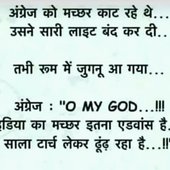 अंग्रेज को मच्छर काट रहे थे...
उसने सारी लाइट बंद कर दी...
तभी रूम में जुगनू आ गया...
अंग्रेज : "O MY GOD...!!!
इंडिया का मच्छर इतना एडवांस है..
साला टार्च लेकर ढूंढ़ रहा है...!!"